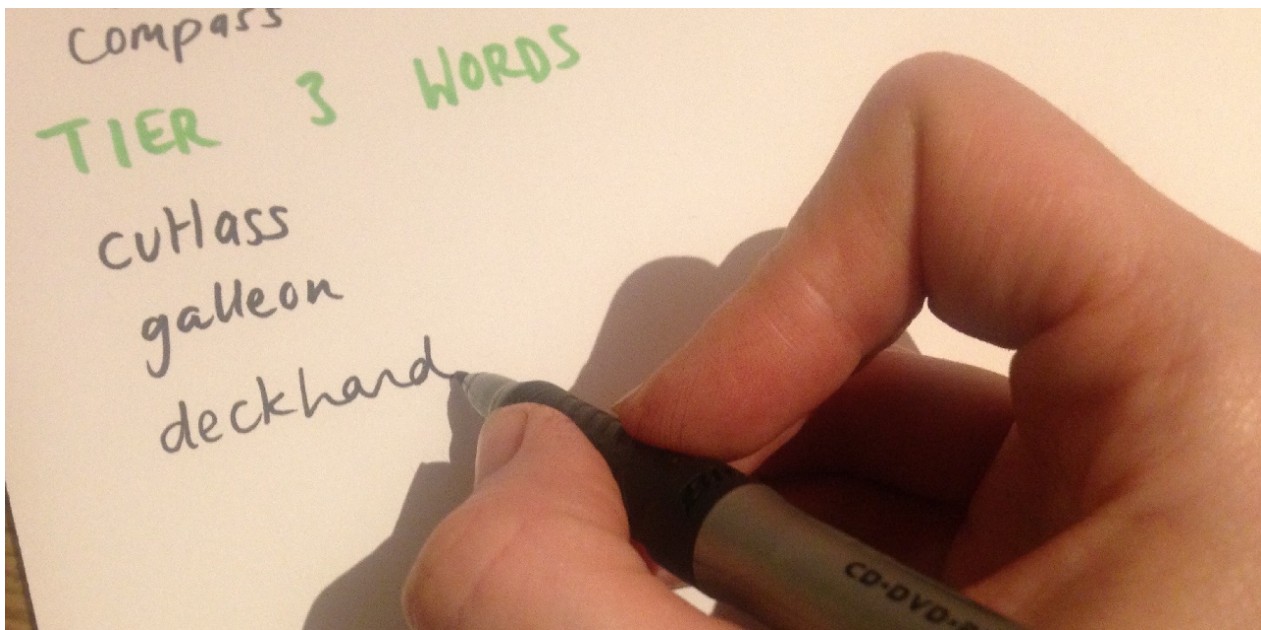 compass
TIER 3 WORDS
cutlass
galleon
deckhand
CD•DVD•